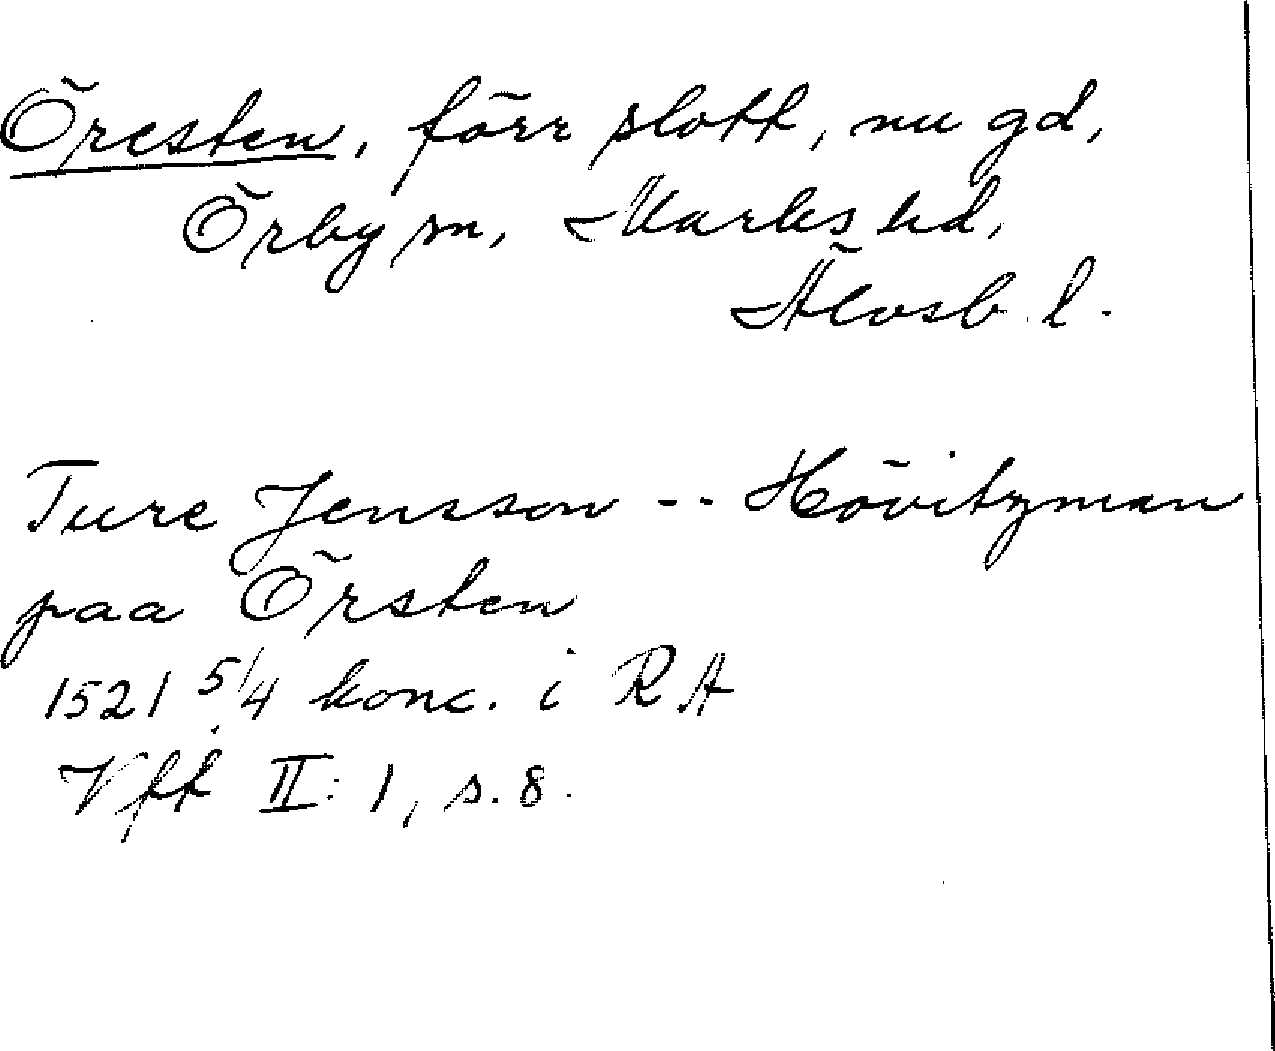 Öresten, förr slott, nu gd,
Örby sn, Marks hd,
Älvsb. l.
Ture Jensson -- Hövitzman
paa Örsten
1521 5/4 konc. i RA
Vff II: 1, s. 8.